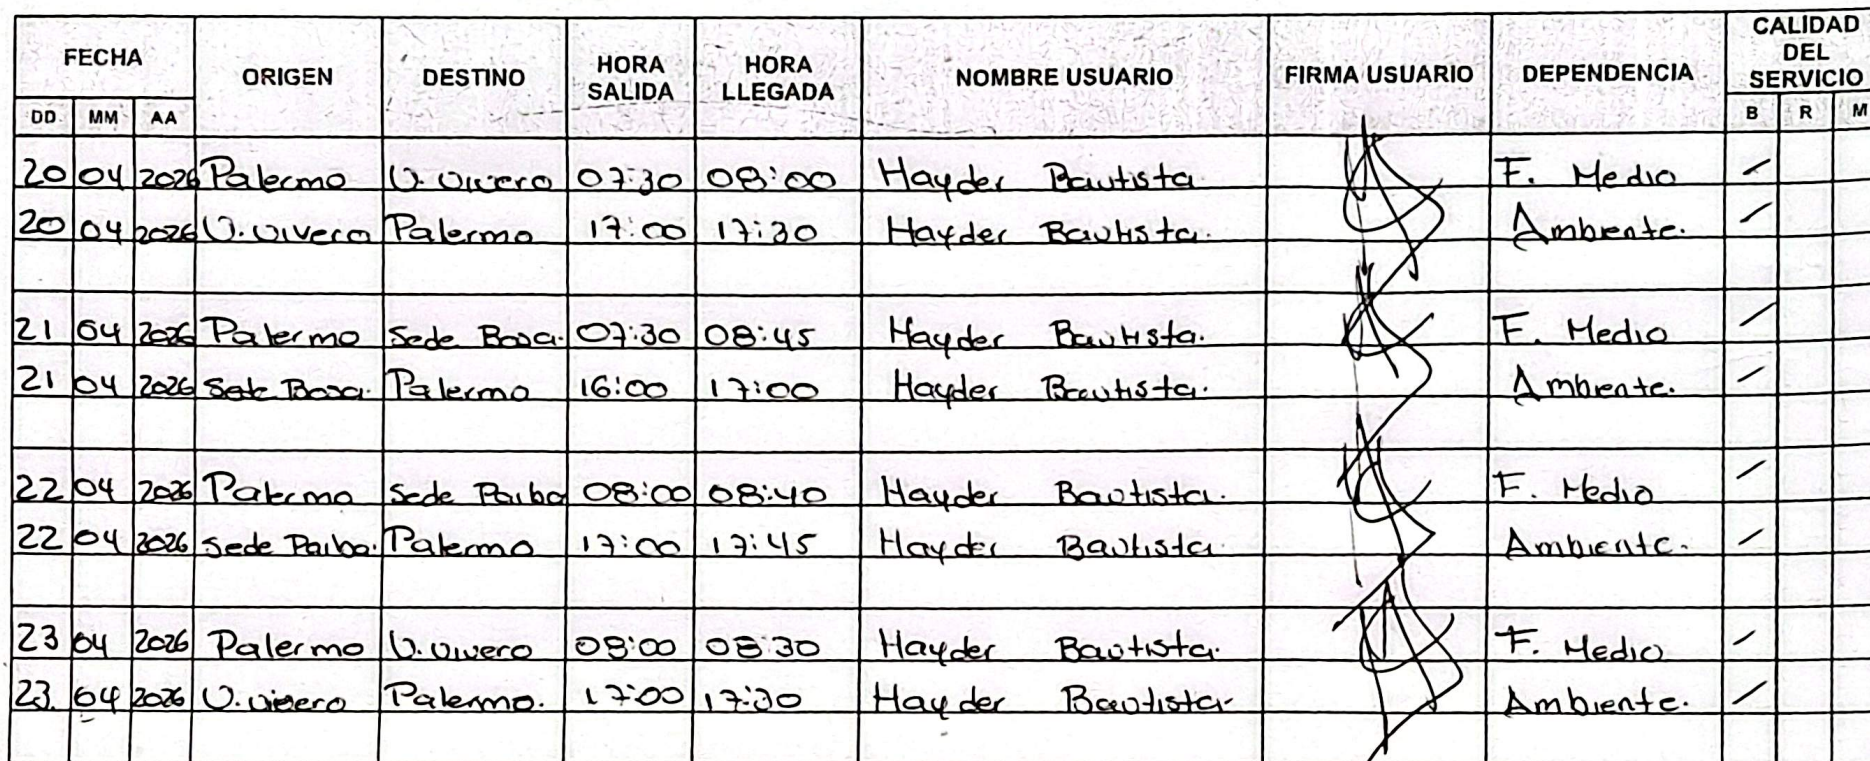 FECHA ORIGEN DESTINO HORA SALIDA HORA LLEGADA NOMBRE USUARIO FIRMA USUARIO DEPENDENCIA CALIDAD DEL SERVICIO
DD MM AA B R M
20 04 2026 Palermo U. Vivero 07:30 08:00 Hayder Bautista. F. Medio
20 04 2026 U. Vivero Palermo 17:00 17:30 Hayder Bautista. Ambiente.
21 04 2026 Palermo Sede Bosa. 07:30 08:45 Hayder Bautista. F. Medio
21 04 2026 Sede Bosa. Palermo 16:00 17:00 Hayder Bautista. Ambiente.
22 04 2026 Palermo Sede Paiba 08:00 08:40 Hayder Bautista. F. Medio
22 04 2026 Sede Paiba. Palermo 17:00 17:45 Hayder Bautista. Ambiente.
23 04 2026 Palermo U. Vivero 08:00 08:30 Hayder Bautista. F. Medio
23. 04 2026 U. Vivero Palermo. 17:00 17:30 Hayder Bautista. Ambiente.